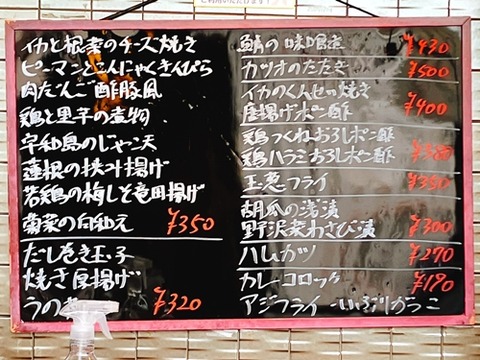 イカと根菜のチーズ焼き
ピーマンとこんにゃくきんぴら
肉だんご酢豚風
鶏と里芋の煮物
宇和島のじゃこ天
蓮根の挟み揚げ
若鶏の梅しそ竜田揚げ
菊菜の白和え ¥350
だしまき玉子
焼き厚揚げ
うの花 ¥320
鯖の味噌煮 ¥430
カツオのたたき ¥500
イカのくんせい焼き
唐揚げポン酢 ¥400
鶏つくねおろしポン酢
鶏ハラミおろしポン酢 ¥380
玉葱フライ ¥350
胡瓜の浅漬
野沢菜わさび漬 ¥300
ハムカツ ¥270
カレーコロッケ ¥190
アジフライ いぶりがっこ